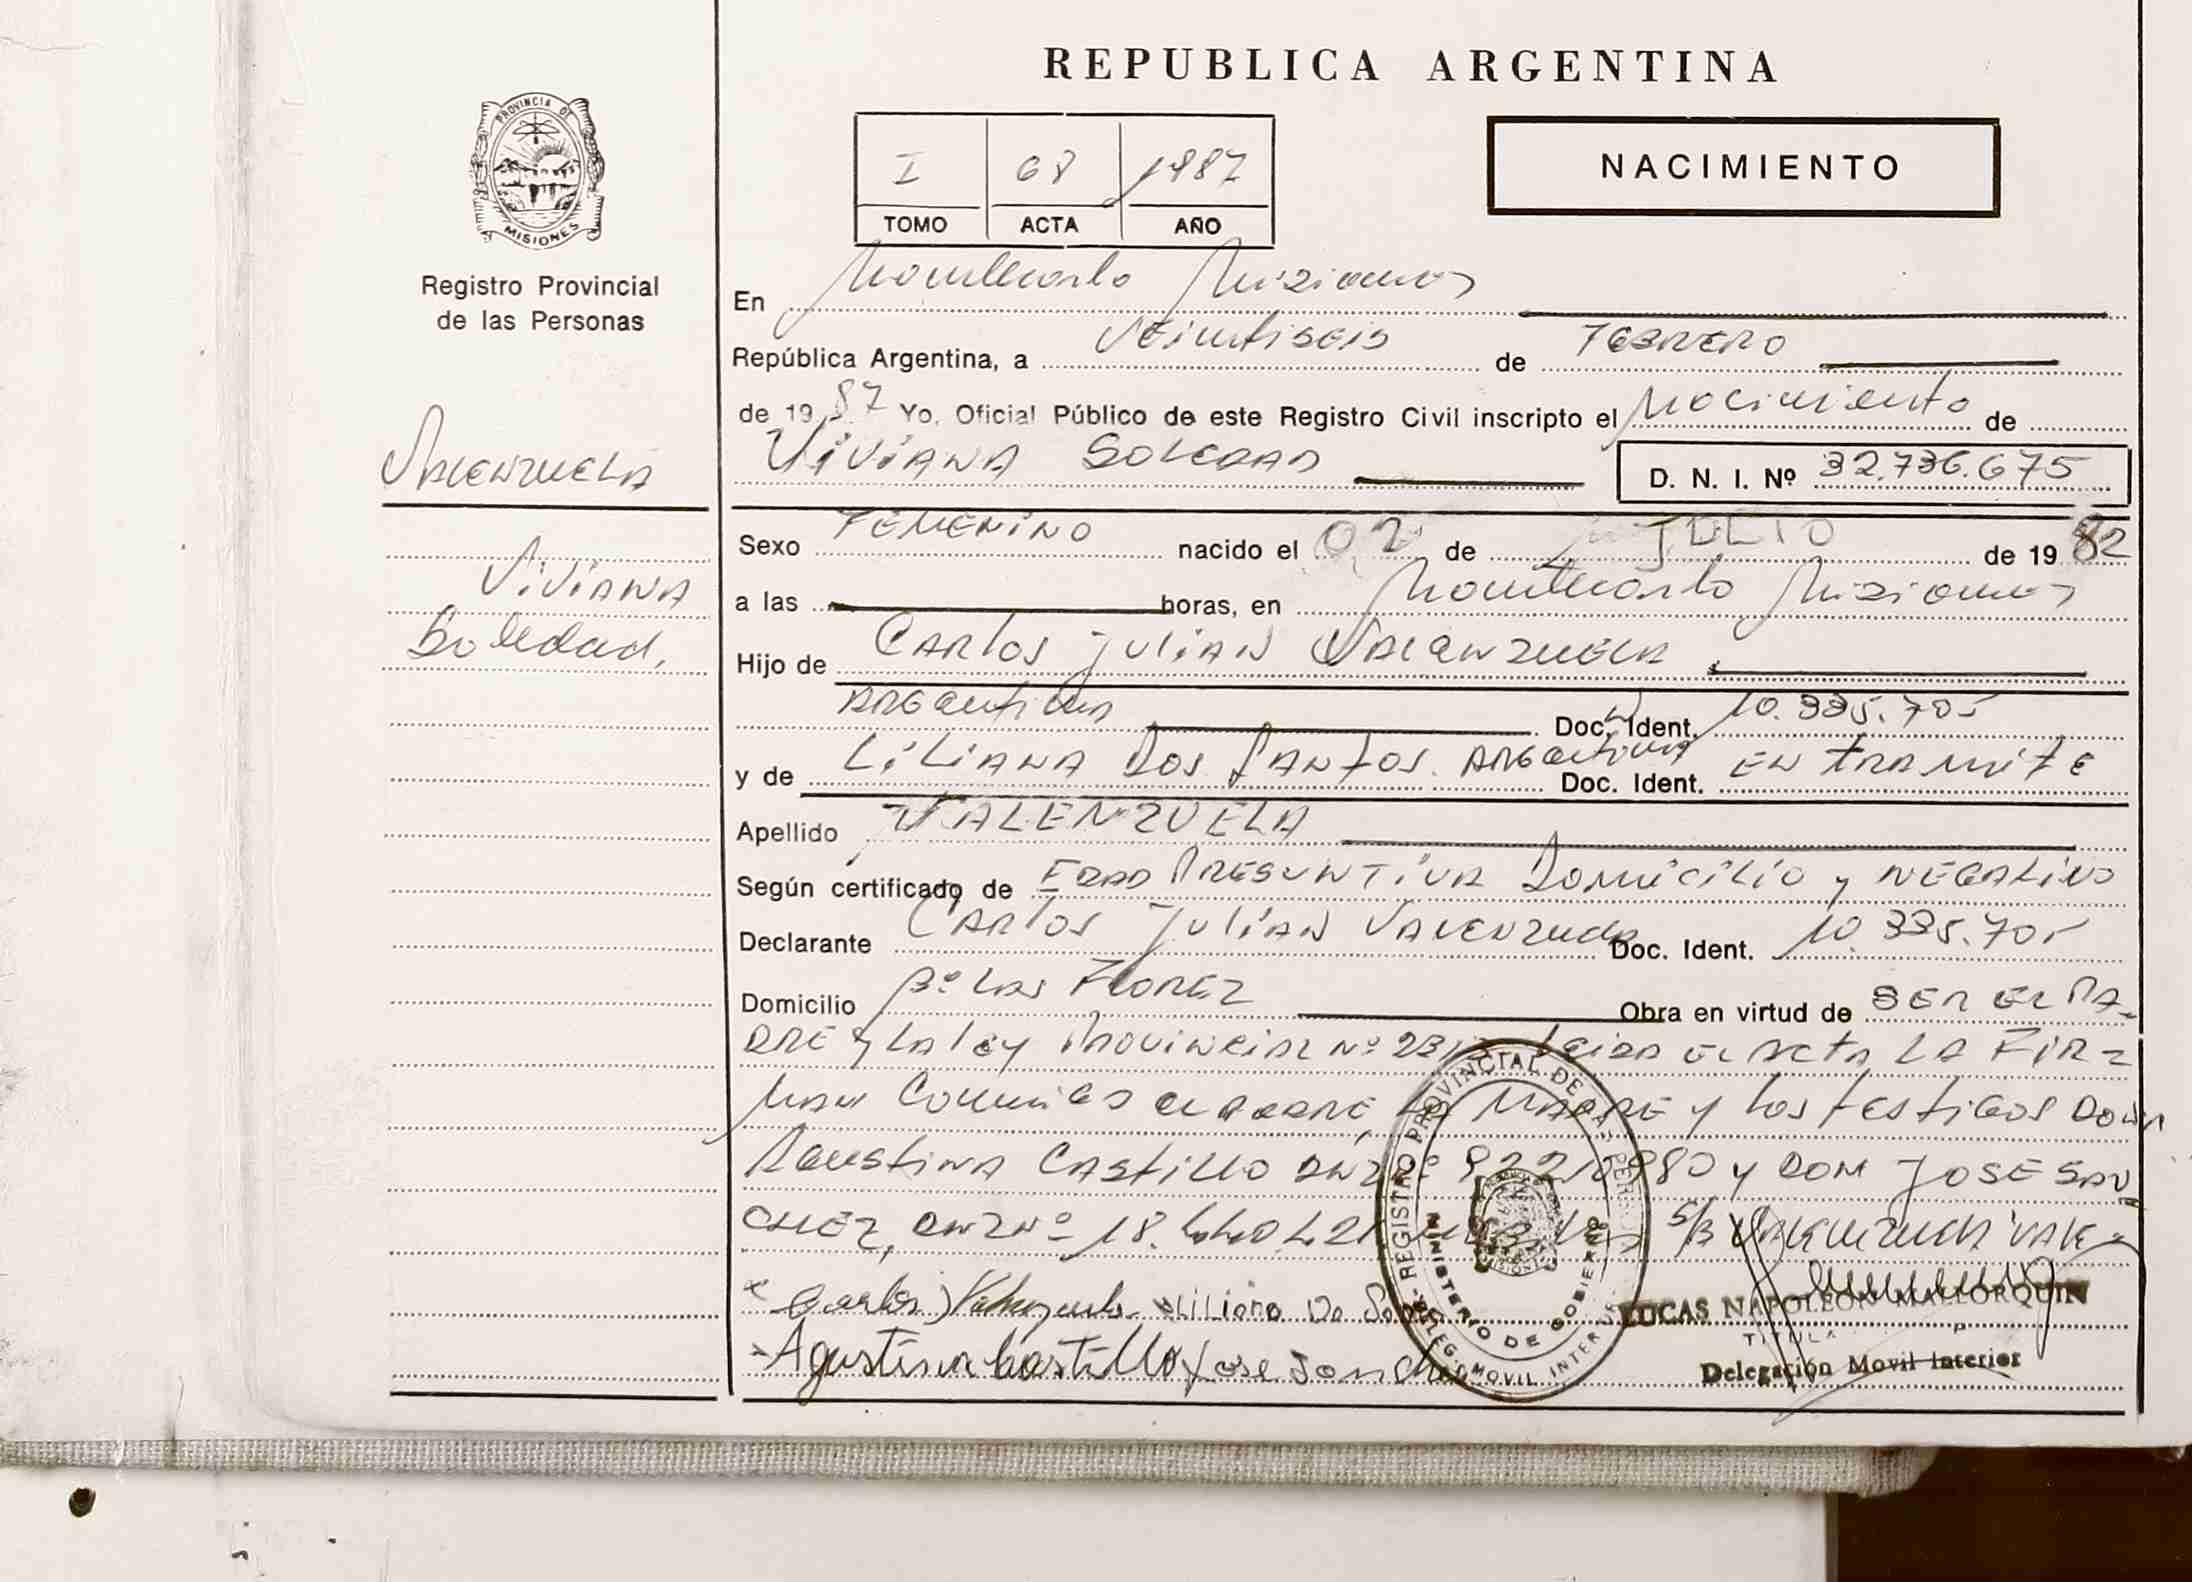 REPUBLICA ARGENTINA
PROVINCIA DE
MISIONES
Registro Provincial
de las Personas
I 68 1987
TOMO ACTA AÑO
NACIMIENTO
En Montecarlo Misiones
República Argentina, a Veintiseis de FEBRERO
de 1987 Yo, Oficial Público de este Registro Civil inscripto el Nacimiento de
VALENZUELA
ViViANA SOLEDAD D. N. I. Nº 32.736.675
Sexo FEMENINO nacido el 02 de JULIO de 1982
ViViANA
a las horas, en Montecarlo Misiones
Soledad,
Hijo de CARlos JULIAN VALENZUELA
ARGentina Doc. Ident. 10.335.705
y de LiLiANA DOS SANTOS ARGentina Doc. Ident. EN tRAMitE
Apellido VALENZUELA
Según certificado de EDAD PRESUNTiVA DOMiCiLiO y NEGATiVO
Declarante CARlos JULIAN VALENZUELA Doc. Ident. 10.335.705
Domicilio Bº LAS FLOREZ Obra en virtud de SER EL PA-
DRE y LA ley PROViNCIAL Nº Leida el Acta LA FIR-
MAN Conmigo el PADRE, LA MADRE y los testigos DOÑA
AGUSTINA CASTILLO y DON JOSE SAN-
CHEZ, DNI Nº 18. S/B VALENZUELA VALE-
Carlos J Valenzuela Liliana Do San
LUCAS NAPOLEON MALLORQUIN
TITULA
Agustina Castillo Jose Sanche
Delegación Movil Interior
REGISTRO PROVINCIAL DE LAS PERSONAS
MINISTERIO DE GOBIERNO
DELEG. MOVIL INTERIOR